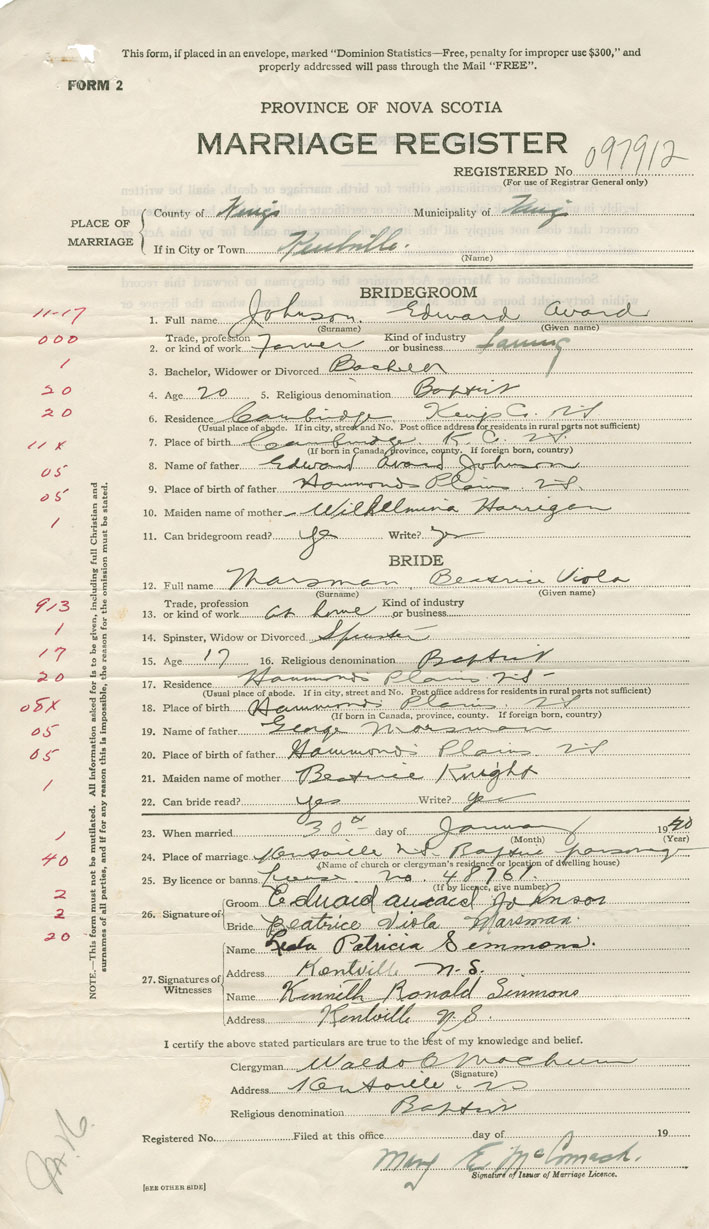 This form, if placed in an envelope, marked "Dominion Statistics—Free, penalty for improper use $300," and
properly addressed will pass through the Mail "FREE".
FORM 2
PROVINCE OF NOVA SCOTIA
MARRIAGE REGISTER
REGISTERED No 097912
(For use of Registrar General only)
PLACE OF MARRIAGE
County of Kings Municipality of Kings
If in City or Town Kentville.
(Name)
BRIDEGROOM
11-17
1. Full name Johnson Edward Avard
(Surname) (Given name)
000
2. Trade, profession or kind of work Farmer Kind of industry or business Farming
1
3. Bachelor, Widower or Divorced Bachelor
20
4. Age 20 5. Religious denomination Baptist
20
6. Residence Cambridge, Kings Co. NS
(Usual place of abode. If in city, street and No. Post office address for residents in rural parts not sufficient)
11 x
7. Place of birth Cambridge. K. C. N.S.
(If born in Canada, province, county. If foreign born, country)
05
8. Name of father Edward Avard Johnson
05
9. Place of birth of father Hammonds Plains N.S.
10. Maiden name of mother Wilhelmina Harrigan
1
11. Can bridegroom read? yes Write? yes
BRIDE
12. Full name Marsman, Beatrice Viola
(Surname) (Given name)
913
13. Trade, profession or kind of work at home Kind of industry or business
1
14. Spinster, Widow or Divorced Spinster
17
15. Age 17 16. Religious denomination Baptist
20
17. Residence Hammonds Plains N.S.
(Usual place of abode. If in city, street and No. Post office address for residents in rural parts not sufficient)
05x
18. Place of birth Hammonds Plains. NS
(If born in Canada, province, county. If foreign born, country)
05
19. Name of father George Marsman
05
20. Place of birth of father Hammonds Plains NS
21. Maiden name of mother Beatrice Knight
1
22. Can bride read? yes Write? yes
1
23. When married 30th day of January 1940
(Month) (Year)
40
24. Place of marriage Kentville NS Baptist parsonage
(Name of church or clergyman's residence or location of dwelling house)
25. By licence or banns License no. 48761.
(If by licence, give number)
2
26. Signature of
Groom Edward Avard Johnson
2
Bride Beatrice Viola Marsman.
20
27. Signatures of Witnesses
Name Patricia Semmons.
Address Kentville N.S.
Name Kenneth Ronald Simmons
Address Kentville N.S.
I certify the above stated particulars are true to the best of my knowledge and belief.
Clergyman Waldo C Machum
(Signature)
Address Kentville. NS
Religious denomination Baptist
Registered No. Filed at this office day of 19
Mary E McCormack.
Signature of Issuer of Marriage Licence.
[SEE OTHER SIDE]
NOTE.—This form must not be mutilated. All information asked for is to be given, including full Christian and
surnames of all parties, and if for any reason this is impossible, the reason for the omission must be stated.